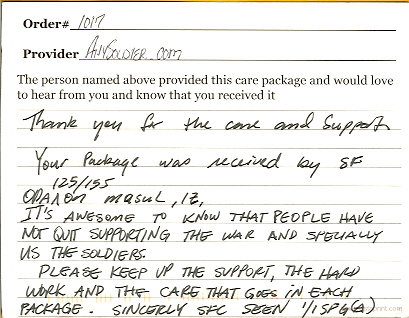 Order# 1017
Provider AnySoldier.com
The person named above provided this care package and would love
to hear from you and know that you received it
Thank you for the care and Support
Your Package was received by SF
125/155
ODA on masul, IZ,
IT'S AWESOME TO KNOW THAT PEOPLE HAVE
NOT QUIT SUPPORTING THE WAR AND SPECIALLY
US THE SOLDIERS.
PLEASE KEEP UP THE SUPPORT, THE HARD
WORK AND THE CARE THAT GOES IN EACH
PACKAGE. SINCERLY SFC SEEN 1/1 SFG(A)